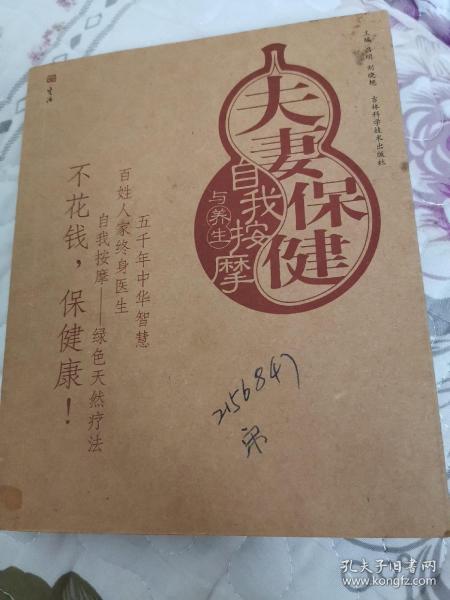 主编 吕明 刘晓艳 吉林科学技术出版社
夫妻保健
自我按摩
与养生
五千年中华智慧
百姓人家终身医生
自我按摩——绿色天然疗法
不花钱，保健康！
2156847
孔夫子旧书网
www.kongfz.com